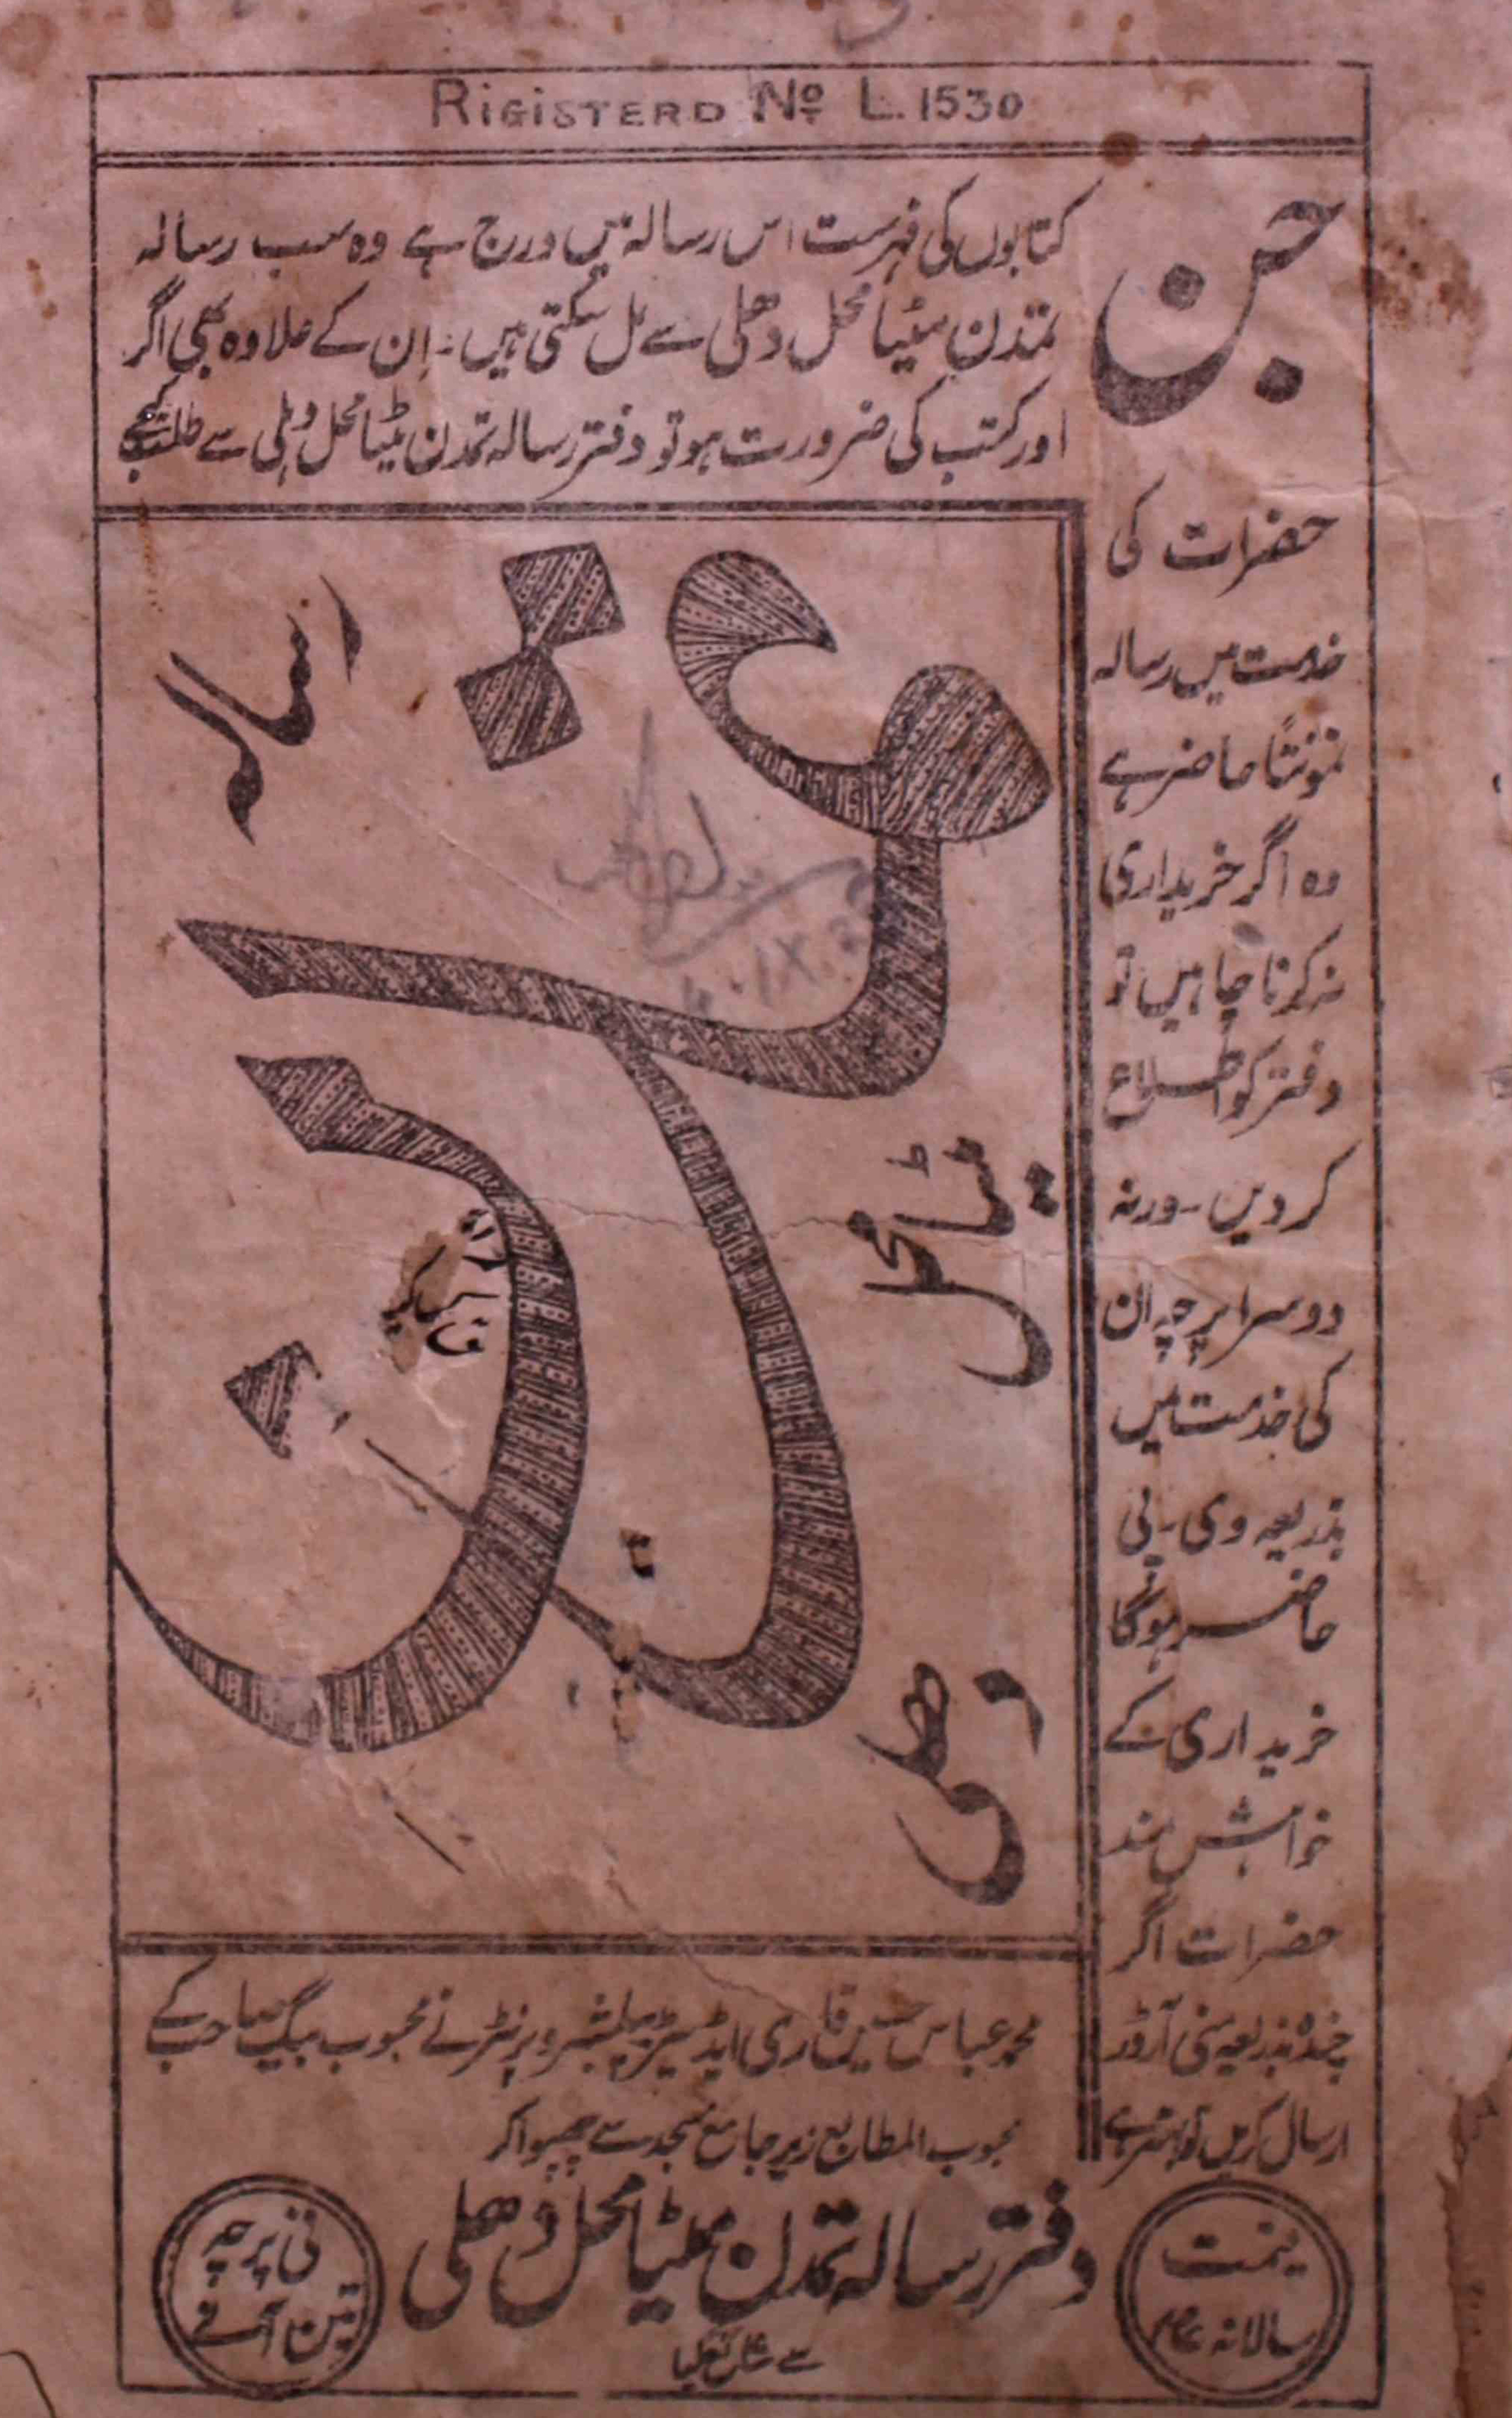 RIGISTERD No L. 1530
جن
کتابوں کی فہرست اس رسالہ میں درج ہے وہ سب رسالہ
تمدن مٹیا محل دھلی سے مل سکتی ہیں۔ اِن کے علاوہ بھی اگر
اور کتب کی ضرورت ہو تو دفتر رسالہ تمدن مٹیا محل دہلی سے طلب کیجے
حضرات کی
خدمت میں رسالہ
نمونتًا حاضر ہے
وہ اگر خریداری
نہ کرنا چاہیں تو
دفتر کو اطلاع
کر دیں۔ ورنہ
دوسرا پرچہ ان
کی خدمت میں
بذریعہ وی۔ پی
حاضر ہوگا
خریداری کے
خواہش مند
حضرات اگر
چندہ بذریعہ منی آرڈر
ارسال کریں تو بہتر ہے
رسالہ
تمدن
مٹیا محل
دھلی
محمد عباس حسین قاری ایڈیٹر پبلشر و پرنٹر نے محبوب بیگ صاحب کے
محبوب المطابع زیر جامع مسجد سے چھپوا کر
دفتر رسالہ تمدن مٹیا محل دھلی
سے شائع کیا
قیمت
سالانہ
فی پرچہ
تین آنے